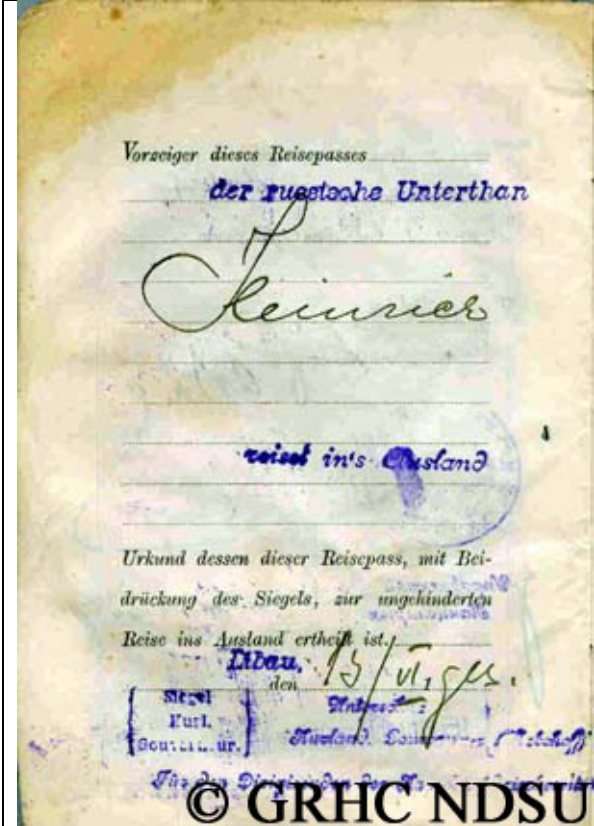 Vorzeiger dieses Reisepasses
der russische Unterthan
Heinrich
reist in's Ausland
Urkund dessen dieser Reisepass, mit Bei-
drückung des Siegels, zur ungehinderten
Reise ins Ausland ertheilt ist.
Libau,
den 13/VI,
Siegel
Kurl.
Für den Dirigirenden der
© GRHC NDSU